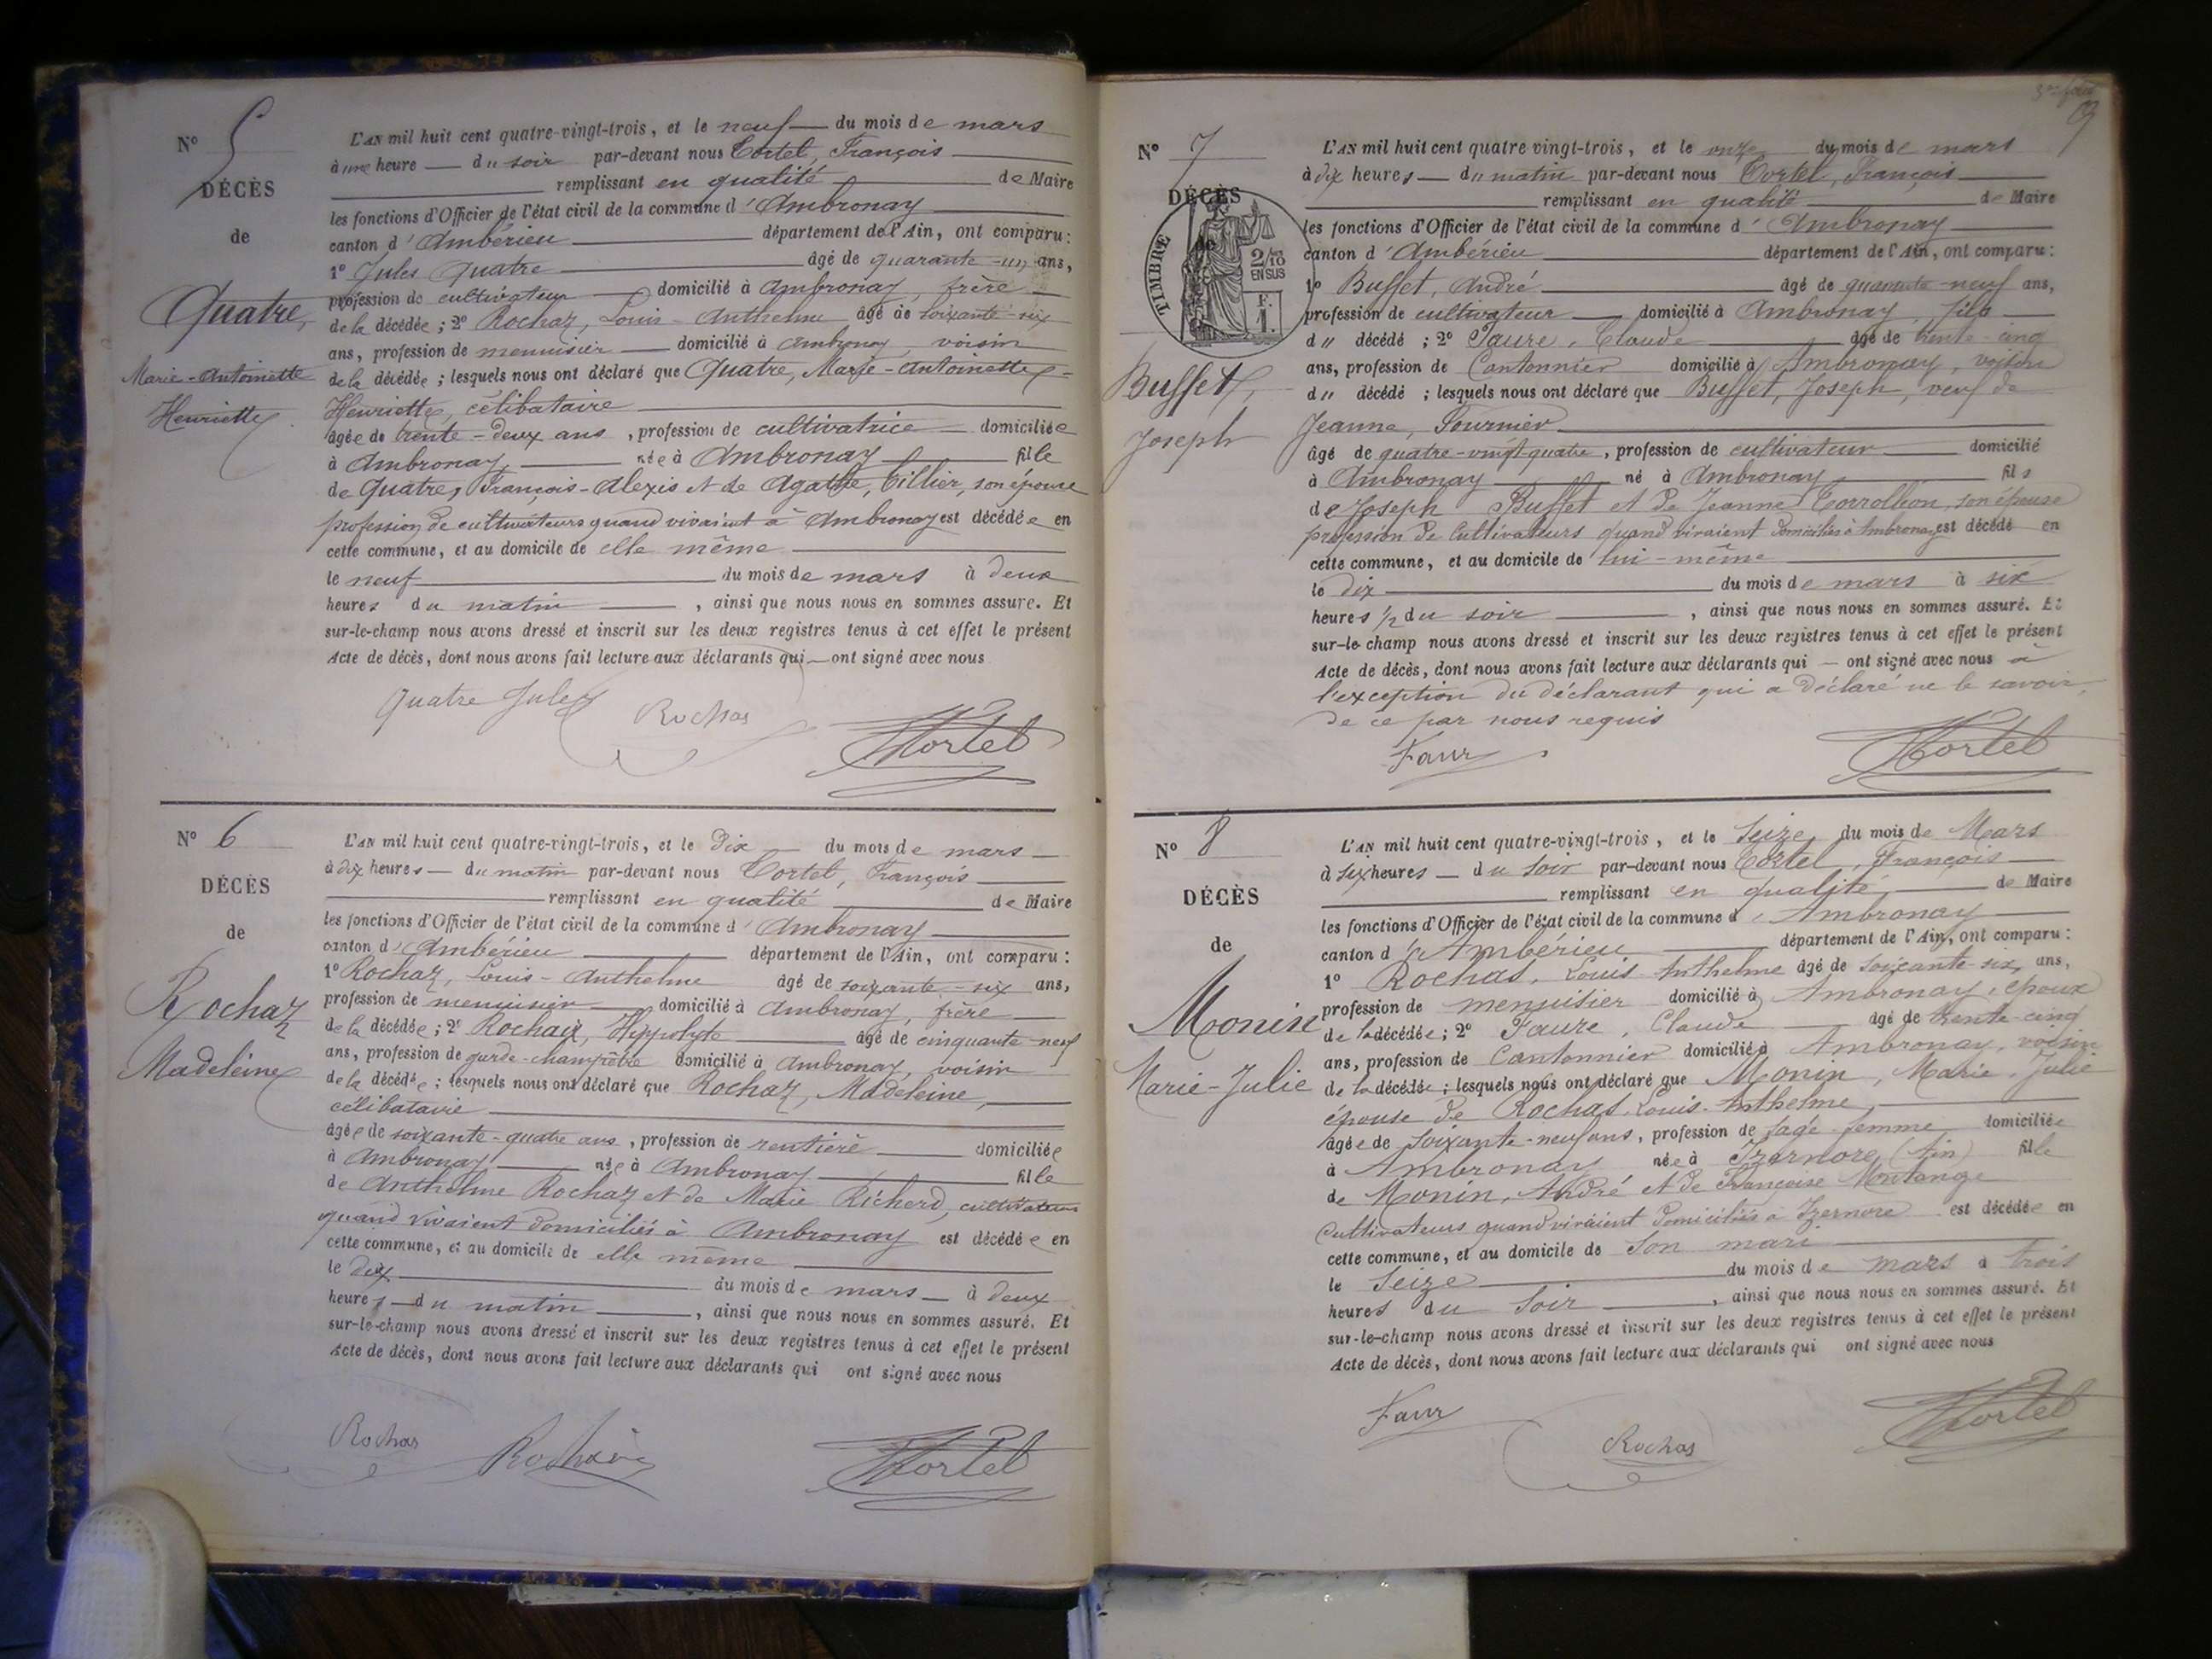 N° 5
DÉCÈS
de
Quatre,
Marie-Antoinette
Henriette
L'AN mil huit cent quatre-vingt-trois, et le neuf du mois de mars
à une heure du soir par-devant nous Tortel, François
remplissant en qualité de Maire
les fonctions d'Officier de l'état civil de la commune d'Ambronay
canton d'Ambérieu département de l'Ain, ont comparu :
1° Jules Quatre âgé de quarante-un ans,
profession de cultivateur domicilié à Ambronay, frère
de la décédée ; 2° Rochaz, Louis-Anthelme âgé de soixante-six
ans, profession de menuisier domicilié à Ambronay, voisin
de la décédée ; lesquels nous ont déclaré que Quatre, Marie-Antoinette-
Henriette, célibataire
âgée de trente-deux ans, profession de cultivatrice domiciliée
à Ambronay, née à Ambronay fille
de Quatre, François-Alexis et de Agathe, Tillier, son épouse
profession de cultivateurs quand vivaient à Ambronay est décédée en
cette commune, et au domicile de elle même
le neuf du mois de mars à deux
heures du matin, ainsi que nous nous en sommes assuré. Et
sur-le-champ nous avons dressé et inscrit sur les deux registres tenus à cet effet le présent
Acte de décès, dont nous avons fait lecture aux déclarants qui ont signé avec nous
Quatre Jules Rochas Tortel
N° 6
DÉCÈS
de
Rochaz
Madeleine
L'AN mil huit cent quatre-vingt-trois, et le dix du mois de mars
à dix heures du matin par-devant nous Tortel, François
remplissant en qualité de Maire
les fonctions d'Officier de l'état civil de la commune d'Ambronay
canton d'Ambérieu département de l'Ain, ont comparu :
1° Rochaz, Louis-Anthelme âgé de soixante-six ans,
profession de menuisier domicilié à Ambronay, frère
de la décédée ; 2° Rochaix, Hippolyte âgé de cinquante-neuf
ans, profession de garde-champêtre domicilié à Ambronay, voisin
de la décédée ; lesquels nous ont déclaré que Rochaz, Madeleine,
célibataire
âgée de soixante-quatre ans, profession de rentière domiciliée
à Ambronay née à Ambronay fille
de Anthelme Rochaz et de Marie Richerd, cultivateurs
quand vivaient domiciliés à Ambronay est décédée en
cette commune, et au domicile de elle même
le dix du mois de mars à deux
heures du matin, ainsi que nous nous en sommes assuré. Et
sur-le-champ nous avons dressé et inscrit sur les deux registres tenus à cet effet le présent
Acte de décès, dont nous avons fait lecture aux déclarants qui ont signé avec nous
Rochas Rochaix Tortel
N° 7
DÉCÈS
de
TIMBRE
2/10
EN SUS
F.
1.
Buffet,
Joseph
L'AN mil huit cent quatre-vingt-trois, et le onze du mois de mars
à dix heures du matin par-devant nous Tortel, François
remplissant en qualité de Maire
les fonctions d'Officier de l'état civil de la commune d'Ambronay
canton d'Ambérieu département de l'Ain, ont comparu :
1° Buffet, André âgé de quarante-neuf ans,
profession de cultivateur domicilié à Ambronay, fils
du décédé ; 2° Faure, Claude âgé de trente-cinq
ans, profession de Cantonnier domicilié à Ambronay, voisin
du décédé ; lesquels nous ont déclaré que Buffet, Joseph, veuf de
Jeanne, Fournier
âgé de quatre-vingt-quatre, profession de cultivateur domicilié
à Ambronay né à Ambronay fils
de Joseph Buffet et de Jeanne son épouse
profession de Cultivateurs quand vivaient domiciliés à Ambronay est décédé en
cette commune, et au domicile de lui-même
le dix du mois de mars à six
heures 1/2 du soir, ainsi que nous nous en sommes assuré. Et
sur-le-champ nous avons dressé et inscrit sur les deux registres tenus à cet effet le présent
Acte de décès, dont nous avons fait lecture aux déclarants qui — ont signé avec nous à
l'exception du déclarant qui a déclaré ne le savoir,
de ce par nous requis
Faur Tortel
N° 8
DÉCÈS
de
Monin
Marie-Julie
L'AN mil huit cent quatre-vingt-trois, et le Seize du mois de Mars
à six heures du soir par-devant nous Tortel, François
remplissant en qualité de Maire
les fonctions d'Officier de l'état civil de la commune d'Ambronay
canton d'Ambérieu département de l'Ain, ont comparu :
1° Rochas, Louis-Anthelme âgé de soixante-six ans,
profession de menuisier domicilié à Ambronay, époux
de la décédée ; 2° Faure, Claude âgé de trente-cinq
ans, profession de Cantonnier domicilié à Ambronay, voisin
de la décédée ; lesquels nous ont déclaré que Monin, Marie-Julie
épouse de Rochas Louis-Anthelme,
âgée de soixante-neuf ans, profession de sage-femme domiciliée
à Ambronay née à Izernore (Ain) fille
de Monin, André et de Françoise Montange
Cultivateurs quand vivaient domiciliés à Izernore est décédée en
cette commune, et au domicile de son mari
le Seize du mois de mars à trois
heures du soir, ainsi que nous nous en sommes assuré. Et
sur-le-champ nous avons dressé et inscrit sur les deux registres tenus à cet effet le présent
Acte de décès, dont nous avons fait lecture aux déclarants qui ont signé avec nous
Faur Rochas Tortel